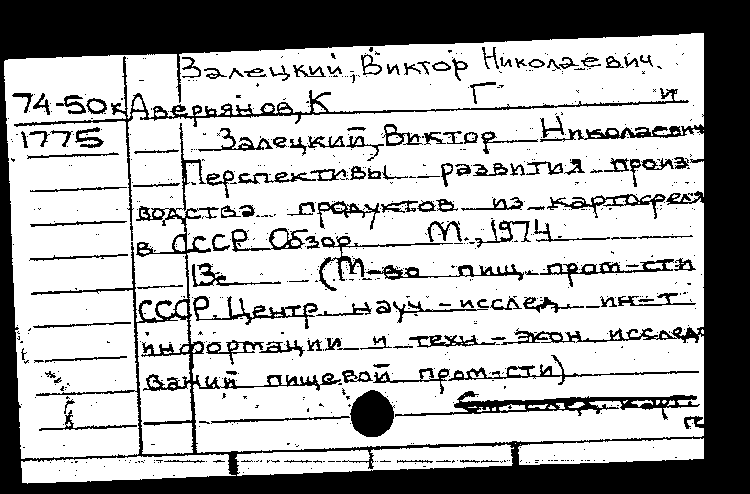 Залецкий, Виктор Николаевич.
74-50к Аверьянов, К Г и
1775 Залецкий, Виктор Николаевич
Перспективы развития произ-
водства продуктов из картофеля
в СССР. Обзор. М., 1974.
13с (М-во пищ. пром-сти
СССР. Центр. науч.-исслед. ин-т
информации и техн.-экон. исследо
ваний пищевой пром-сти).
См. след. карт.